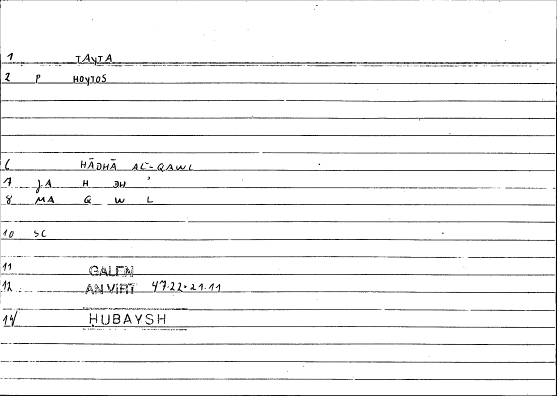 1 TAYTA
2 P HOYTOS
6 HĀDHĀ AL-QAWL
7 JA H DH ʾ
8 MA Q W L
10 SC
11 GALEN
12 AN VIRT 47.22-21.11
14/ ḤUBAYSH